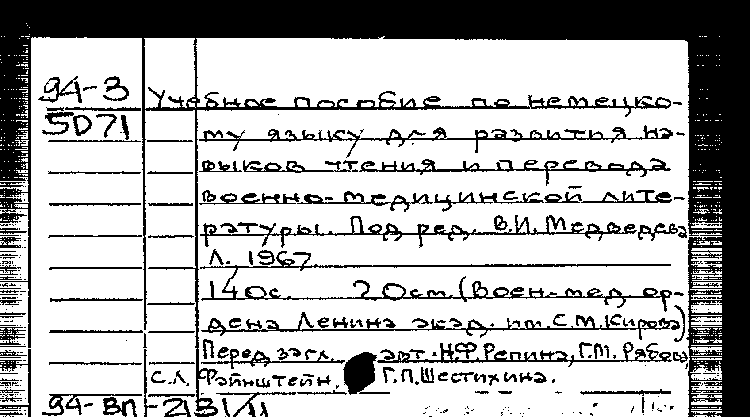 94-3 Учебное пособие по немецко-
5071 му языку для развития на-
выков чтения и перевода
военно-медицинской лите-
ратуры. Под ред. В.И. Медведева
Л., 1967.
140с. 20см. (Воен.-мед. ор-
дена Ленина акад. им. С.М. Кирова)
Перед загл. авт.: Н.Ф. Репина, Г.М. Рябова,
с.л. Файнштейн, Г.П. Шестихина.
94-ВП-2181/11